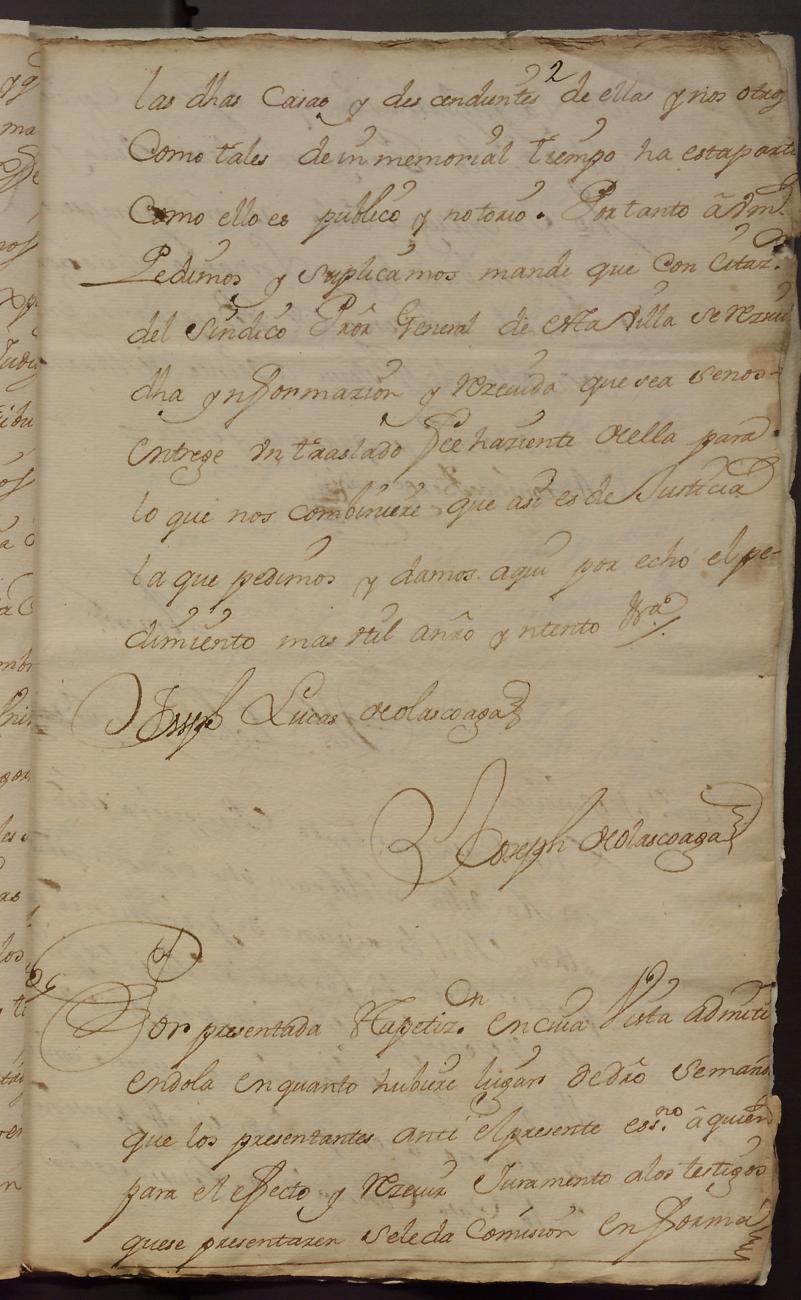 2
las dhas Casas y descendientes de ellas y nos otros
Como tales de in memorial tiempo ha esta parte
Como ello es publico y notorio. Por tanto â Vm.
Pedimos y suplicamos mande que con Citaz.on
del Sindico Pror General de esta Villa se rezivа
dha ynformazion y rezeuida que sea se nos
entrege vn traslado fee haziente de ella para
lo que nos combiniere que asi es de Justicia
la que pedimos y damos aqui por echo el pe-
dimiento mas vtil a nro yntento &ra
Joseph Lucas de olascoaga
Joseph de olascoaga
Por presentada esta petiz.on en cuia Vista admiti
endola en quanto hubiere lugar de dro se manda
que los presentantes ante el presente ess.no â quien
para el efecto y rezeuir Juramento a los testigos
que se presentaren se le da Comision en forma